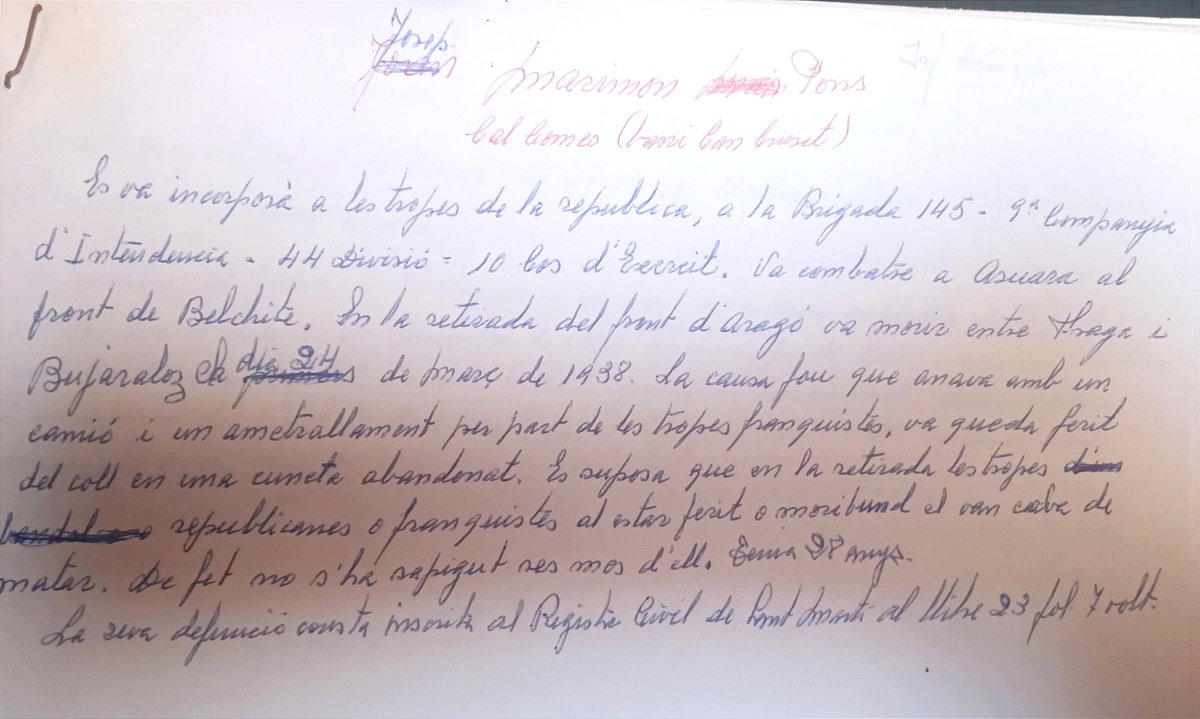 Josep
Marimon Pons
Cal Comes (barri Can Cuset)
Es va incorporà a les tropes de la republica, a la Brigada 145 - 9ª Companyia
d'Intendencia - 44 Divisió = 10 Cos d'Exercit. Va combatre a Asuara al
front de Belchite. En la retirada del front d'Aragó va morir entre Fraga i
Bujaraloz el dia 24 de Març de 1938. La causa fou que anava amb un
camió i un ametrallament per part de les tropes franquistes, va queda ferit
del coll en una cuneta abandonat. Es suposa que en la retirada les tropes
republicanes o franquistes al estar ferit o moribund el van caba de
matar. De fet no s'ha sapigut res mes d'ell. Tenia 28 anys.
La seva defunció consta inscrita al Registre Civil de Sant Martí al llibre 23 fol. 7 volt.